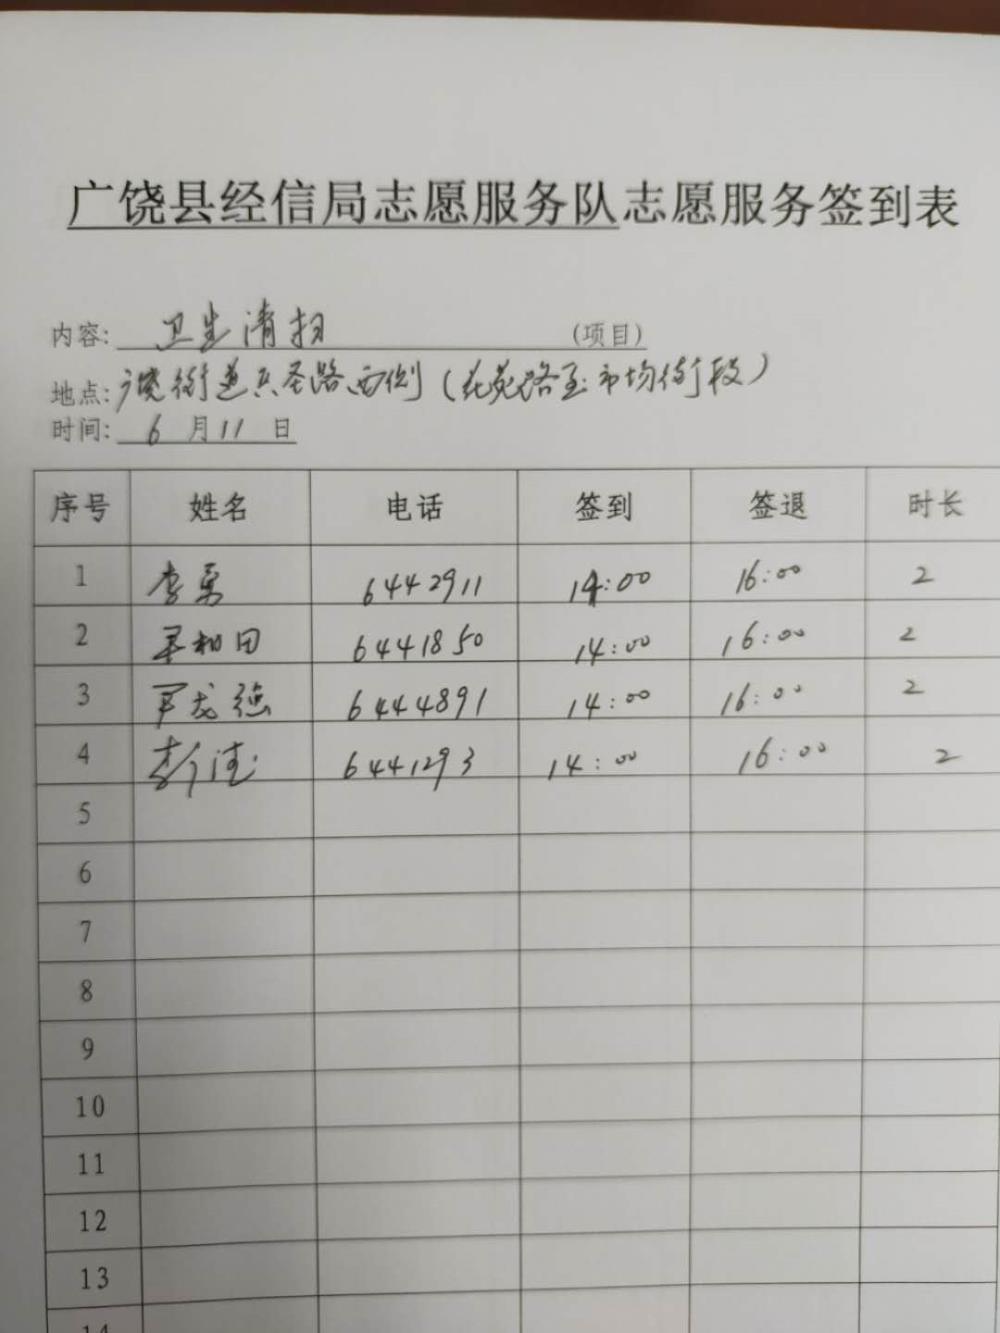 广饶县经信局志愿服务队志愿服务签到表
内容: 卫生清扫 (项目)
地点: 广饶街道兵圣路西侧(花苑路至市场街段)
时间: 6 月 11 日
序号 姓名 电话 签到 签退 时长
1 李勇 6442911 14:00 16:00 2
2 和田 6441850 14:00 16:00 2
3 尹龙强 6444891 14:00 16:00 2
4 6441293 14:00 16:00 2
5
6
7
8
9
10
11
12
13
14